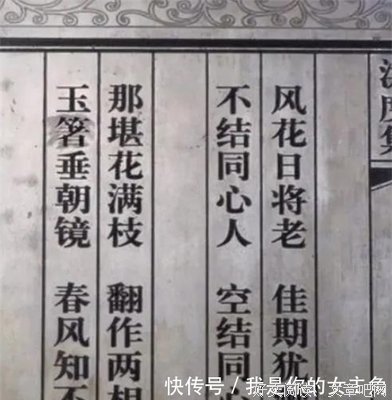 风花日将老 佳期犹
不结同心人 空结同心
那堪花满枝 翻作两相
玉箸垂朝镜 春风知不
快传号 / 我是你的女主角
文章吧网